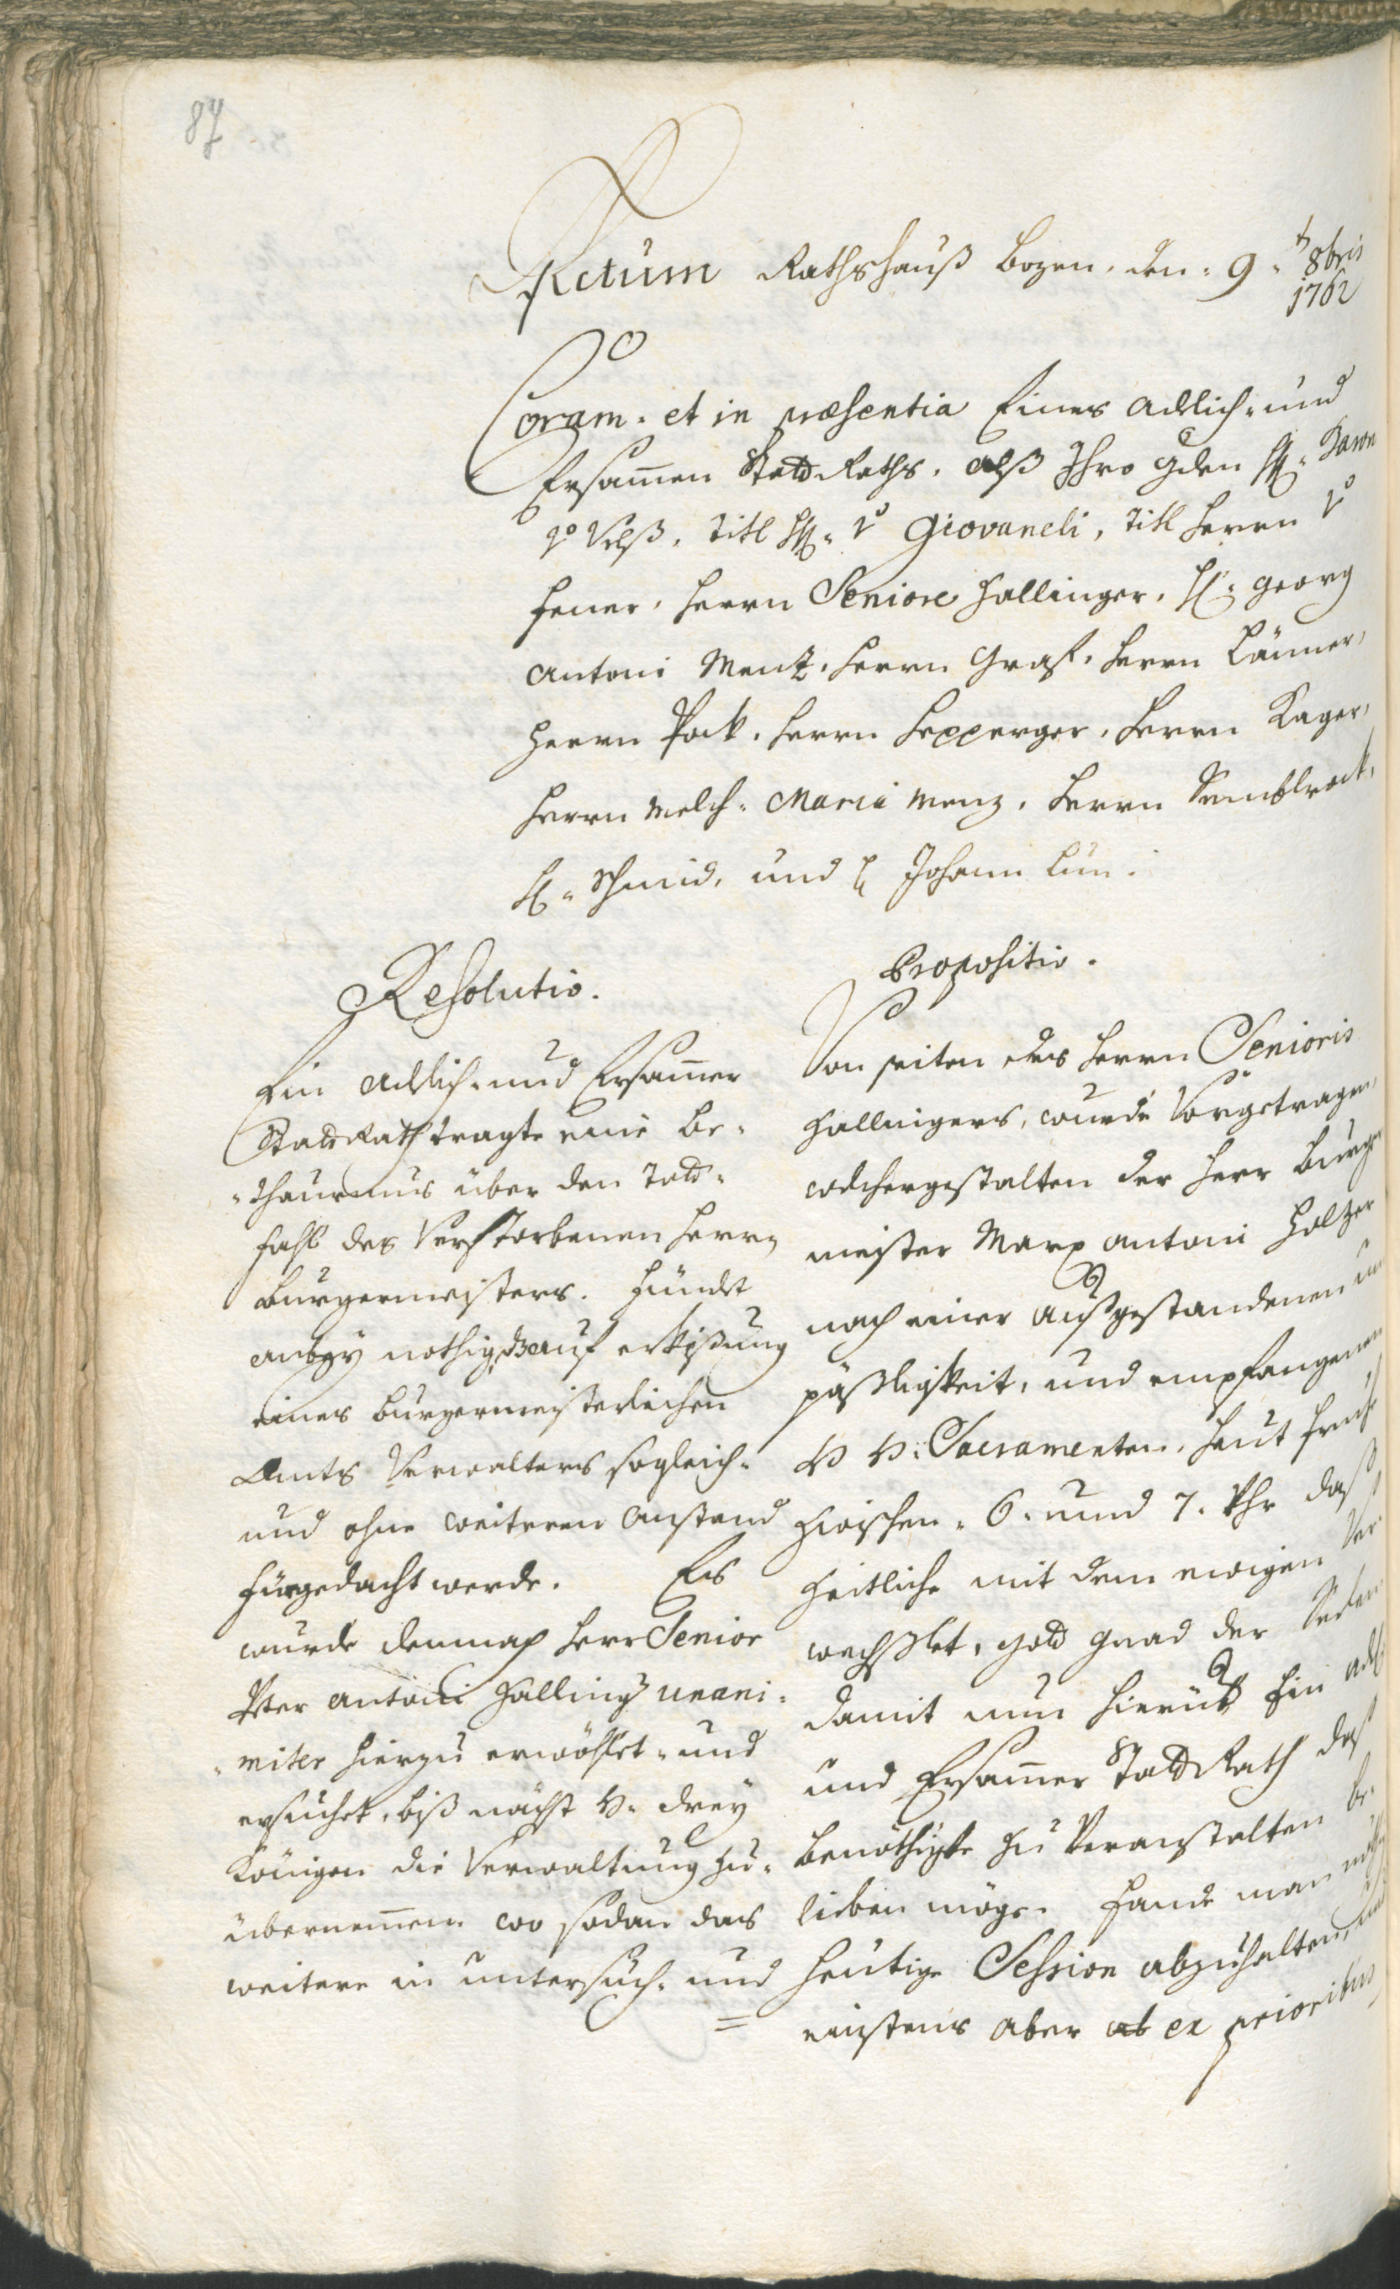 87
Actum Rathshauß Bozen, den 9. t 8bris
1762
Coram et in præsentia Eines Adlich- und
Ersamen StattRaths, alß Ihro Gden H: Baron
v: Velß, Titl H: v: Giovaneli, Titl Herrn v:
Fener, Herrn Seniore Hallinger, H: Georg
Antoni Menz, Herrn Graf, Herrn
Herrn Pock, Herrn Hepperger, Herrn Kager,
Herrn Melch: Maria Menz, Herrn
H: Schmid, und H: Johann Lun.
Resolutio.
Ein Adlich- und Ersamer
StattRath tragte eine be-
-thaurnus über den Todt-
fahl des Verstorbenen Herrn
Burgermeisters. Findet
anbey nothig, daß auf erkißung
eines Burgermeisterlichen
Amts Verwalters sogleich-
und ohne weiteren Anstand
fürgedacht werde. Es
wurde demnach Herr Senior
Peter Antoni Halling: unani-
-miter hierzu erwöhlet- und
ersuchet, biß nächst H: drey
Königen die Verwaltung zu-
übernemen. wo sodan das
weitere in untersuch- und
=
Propositio.
Von seiten des Herrn Senioris
Hallingers, wurde Vorgetragen,
welchergestalten der Herr Burger
meister Marx Antoni Holzer
nach einer Außgestandenen un
päßligkeit, und empfangenen
H H: Sacramenten, heut fruhe
zwischen 6. und 7. Uhr daß
zeitliche mit dem ewigen Ver
wechßlet, Gott gnad der Seelen
damit nun hierüb: Ein Adl
und Ersamer StattRath daß
benöthigte zu Veranstalten be-
lieben möge. Fande man nöthig
heutige Session abzuhalten, und
einstens aber ab ex prioribus